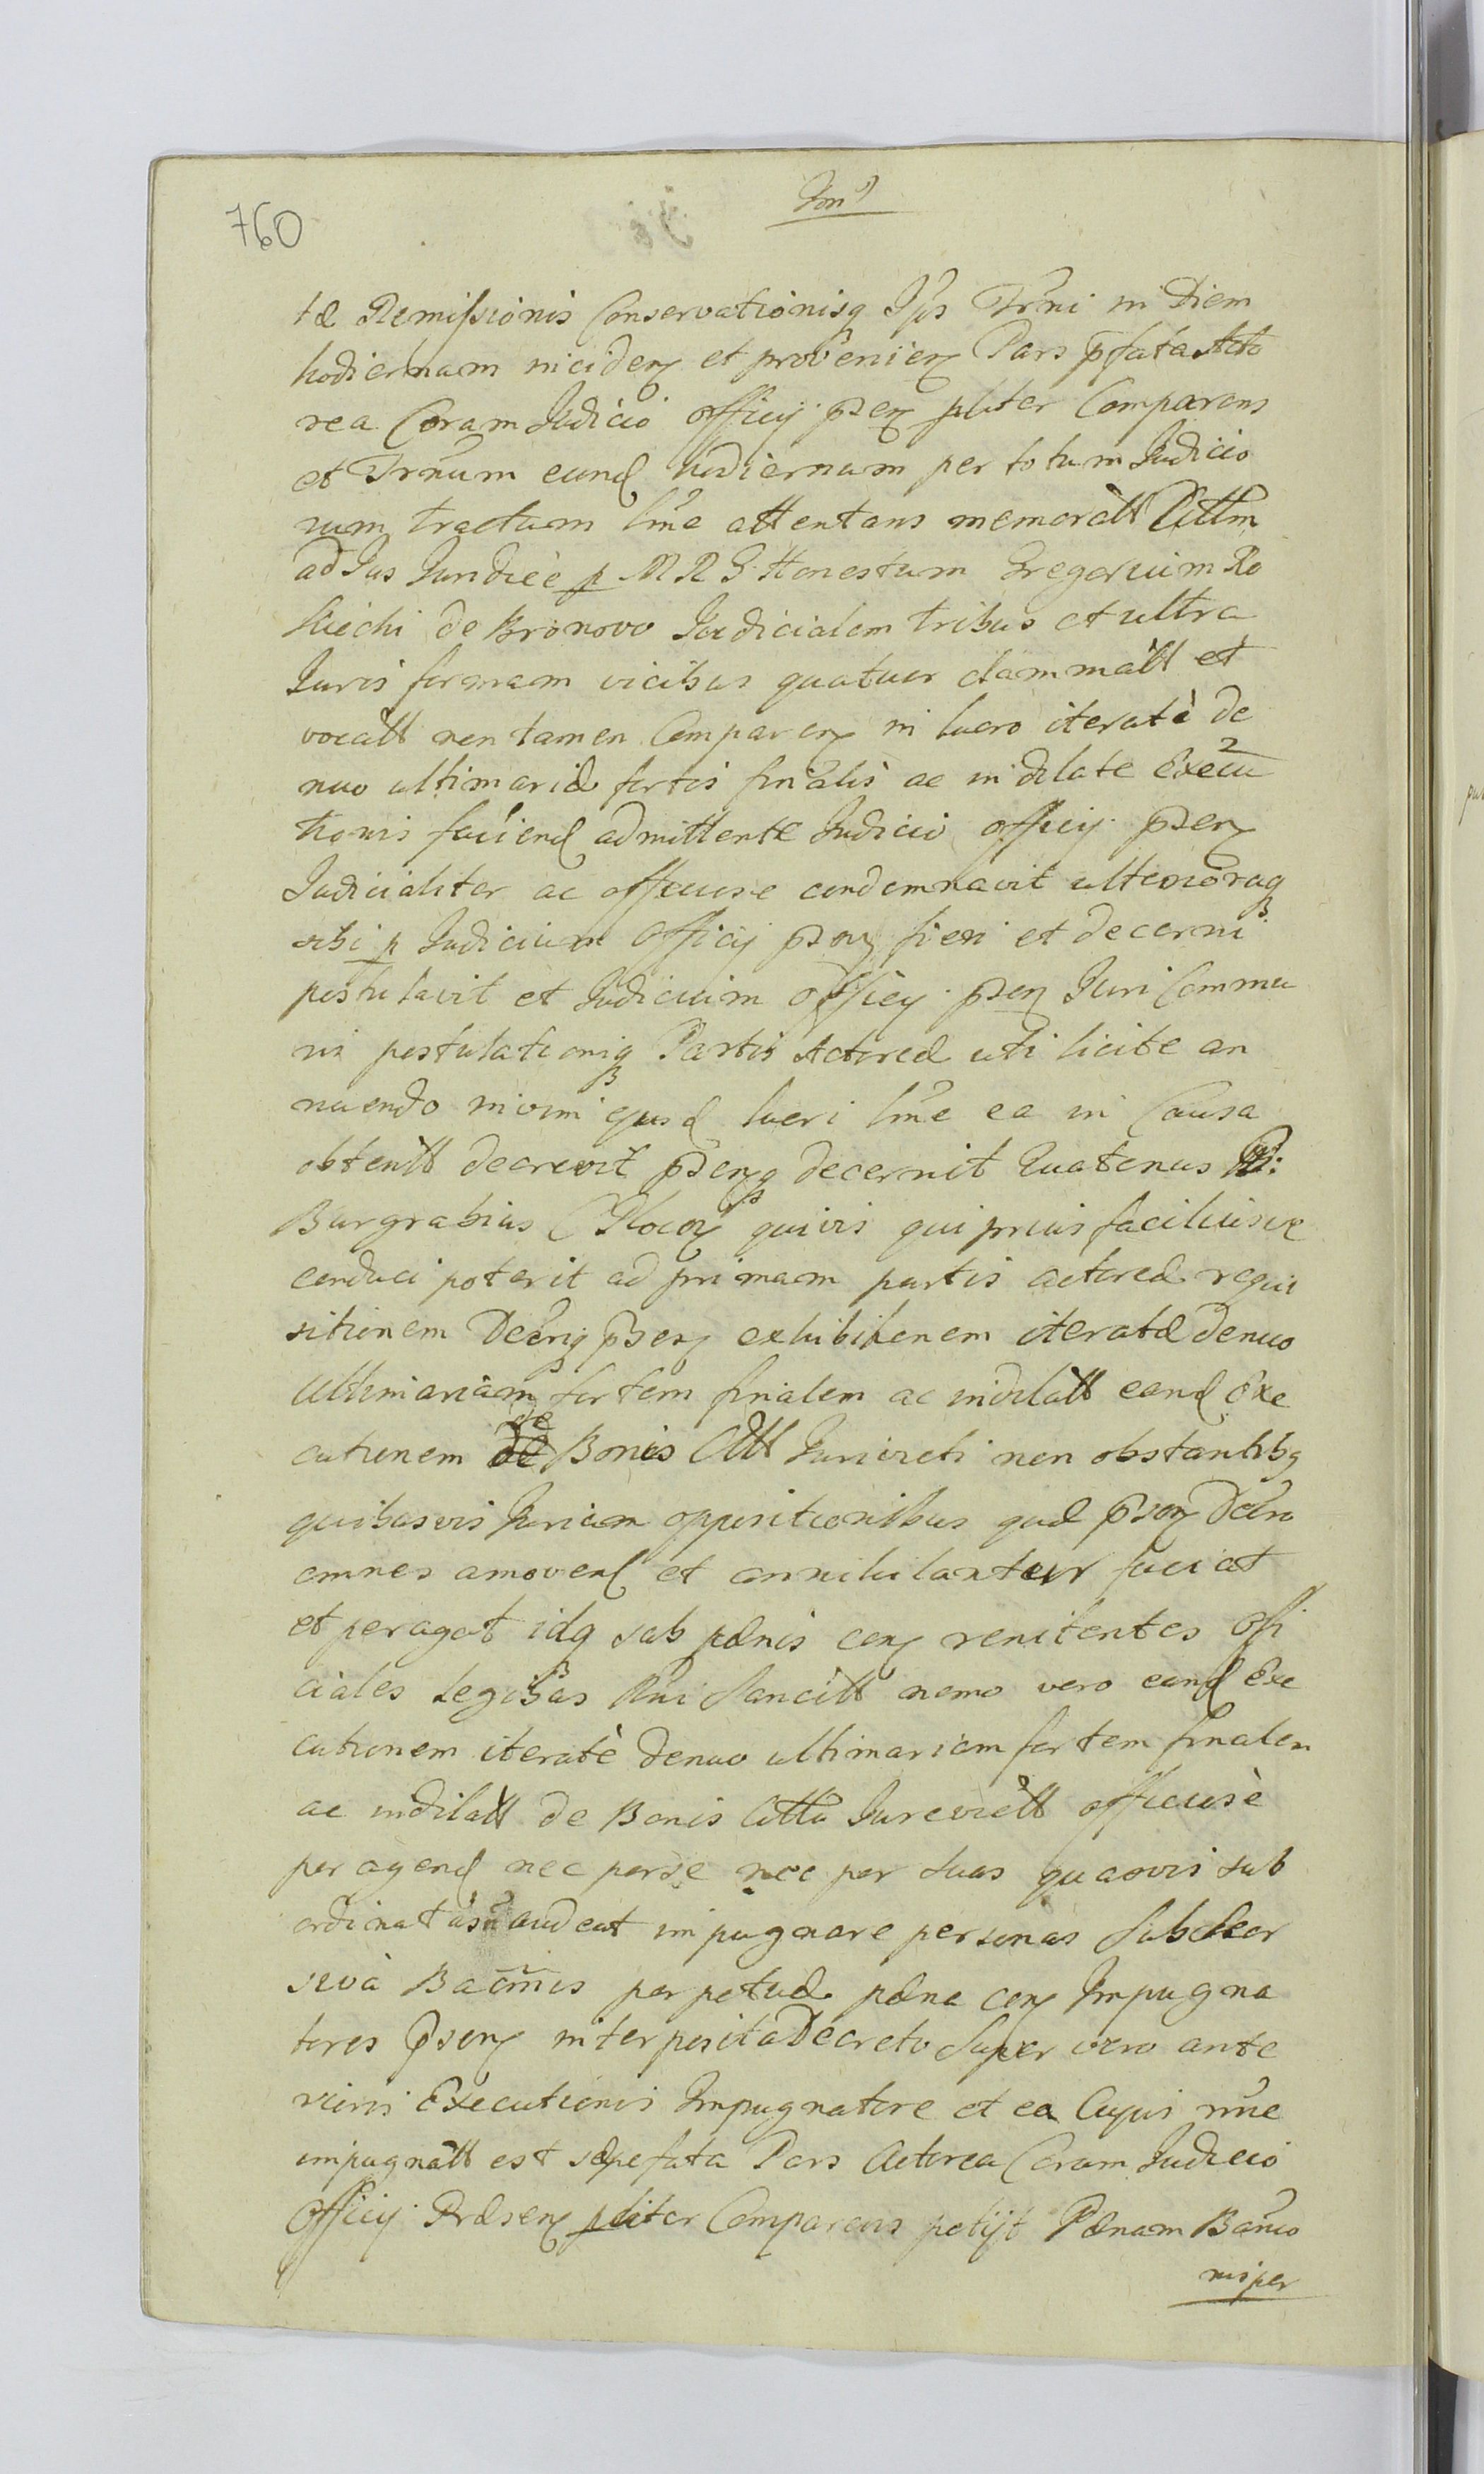 760
tæ Remissionis Conservationisq Ips Trni in Diem
hodiernam inciden et provenien Pars pfata Acto
rea Coram Judicio Officij psen pliter Comparens
et Trnum eund hodiernum per totum Judicio
rum tractum lme attentans memoratt Cittm
ad Jus Juridicè p M R G Honestum Gregorium Ro
kiechi de Bronovo Judicialem tribus et ultra
Juris formam vicibus quatuor clammatt et
vocatt non tamen Comparen in lucro iteratè de
nuo ultimariæ fortis finalis ac indilate Execu
tionis faciend admittente Judicio officij psen
Judicialiter ac officiose condemnavit ulterioraq
sibi p Judicium Officij psen fieri et decerni
postulavit et Judicium Officij psen Juri Commu
ni postulationiq Partis Actoreæ uti licite an
nuendo in vim ejusd lucri lme ea in Causa
obtentt decrevit psenq decernit Quatenus
Burgrabius C Plocen quivis qui prius faciliusve
conduci poterit ad primam partis actoreæ requi
sitionem Decriq psen exhibitionem iteratæ denuo
Ultimariam fortem finalem ac indilatt eand Exe
cutionem de de Bonis Citt Jurivicti non obstantibq
quibusvis Juriam oppositionibus quæ psen Decro
omnes amovend et annihilantur faciat
et peragat idq sub pænis con renitentes Offi
ciales Legibus Rni Sancitt nemo vero eand Exe
cutionem iteratè denuo ultimariam fortem finalem
ac indilatt de Bonis Citto Jurevictt officiosè
per agend nec perse nec per suas quasvis sub
ordinatas audeat impugnare personas Sub
sivà Bacnnis perpetuæ pæna con Impugna
tores psen interposita Decreto Super vero ante
rioris Executionis Impugnatore et ea Cujus nne
impugnatt est sæpefata Pars Actorea Coram Judicio
Officij Præsen pliter Comparens petijt Pænam Banio
nis per